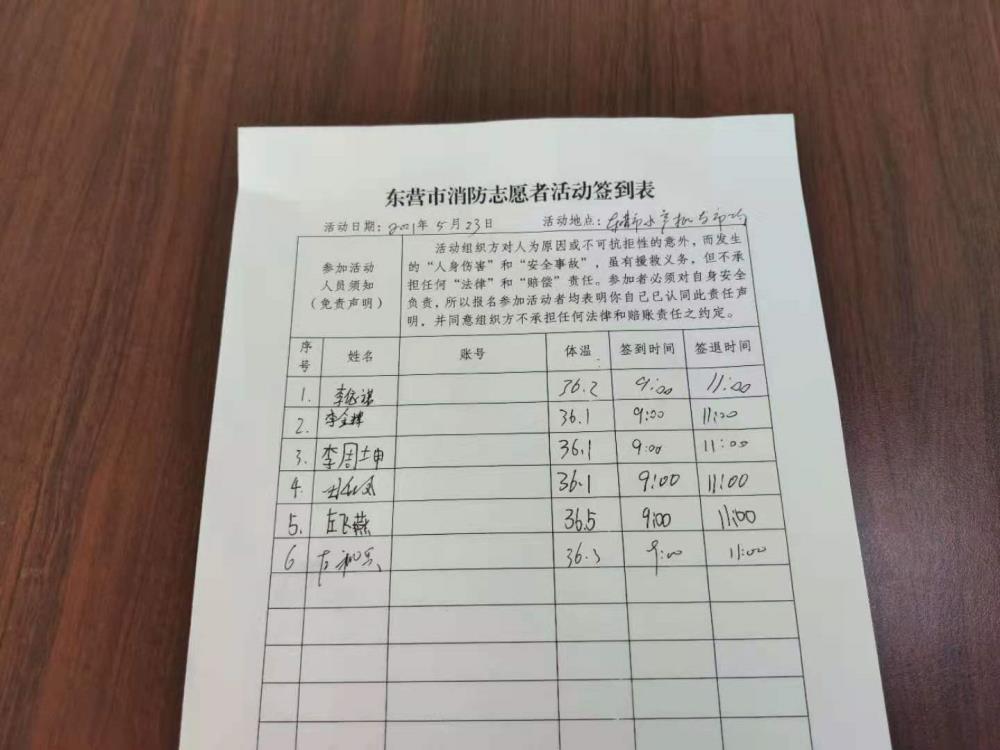 东营市消防志愿者活动签到表
活动日期：2021年5月23日 活动地点：东营市水产批发市场
参加活动
人员须知
（免责声明）
活动组织方对人为原因或不可抗拒性的意外，而发生
的“人身伤害”和“安全事故”，虽有援救义务，但不承
担任何“法律”和“赔偿”责任。参加者必须对自身安全
负责，所以报名参加活动者均表明你自己已认同此责任声
明，并同意组织方不承担任何法律和赔账责任之约定。
序号 姓名 账号 体温 签到时间 签退时间
1. 36.2 9:00 11:00
2. 李金辉 36.1 9:00 11:00
3. 李周坤 36.1 9:00 11:00
4. 36.1 9:00 11:00
5. 左飞燕 36.5 9:00 11:00
6 36.3 9:00 11:00